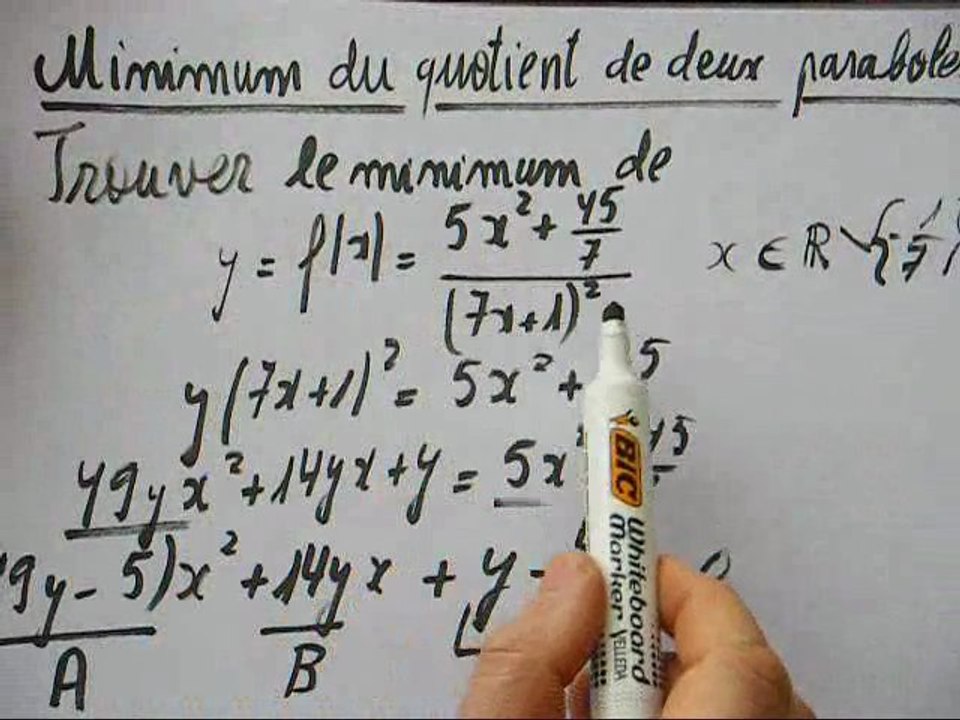 Minimum du quotient de deux parabole
Trouver le minimum de
y = f(x) = (5x² + 45/7) / (7x+1)² x ∈ ℝ \ {-1/7}
y(7x+1)² = 5x² + 5
49yx² + 14yx + y = 5x 45
9y - 5)x² + 14yx + y -
A B
BIC Whiteboard Marker VELLEDA